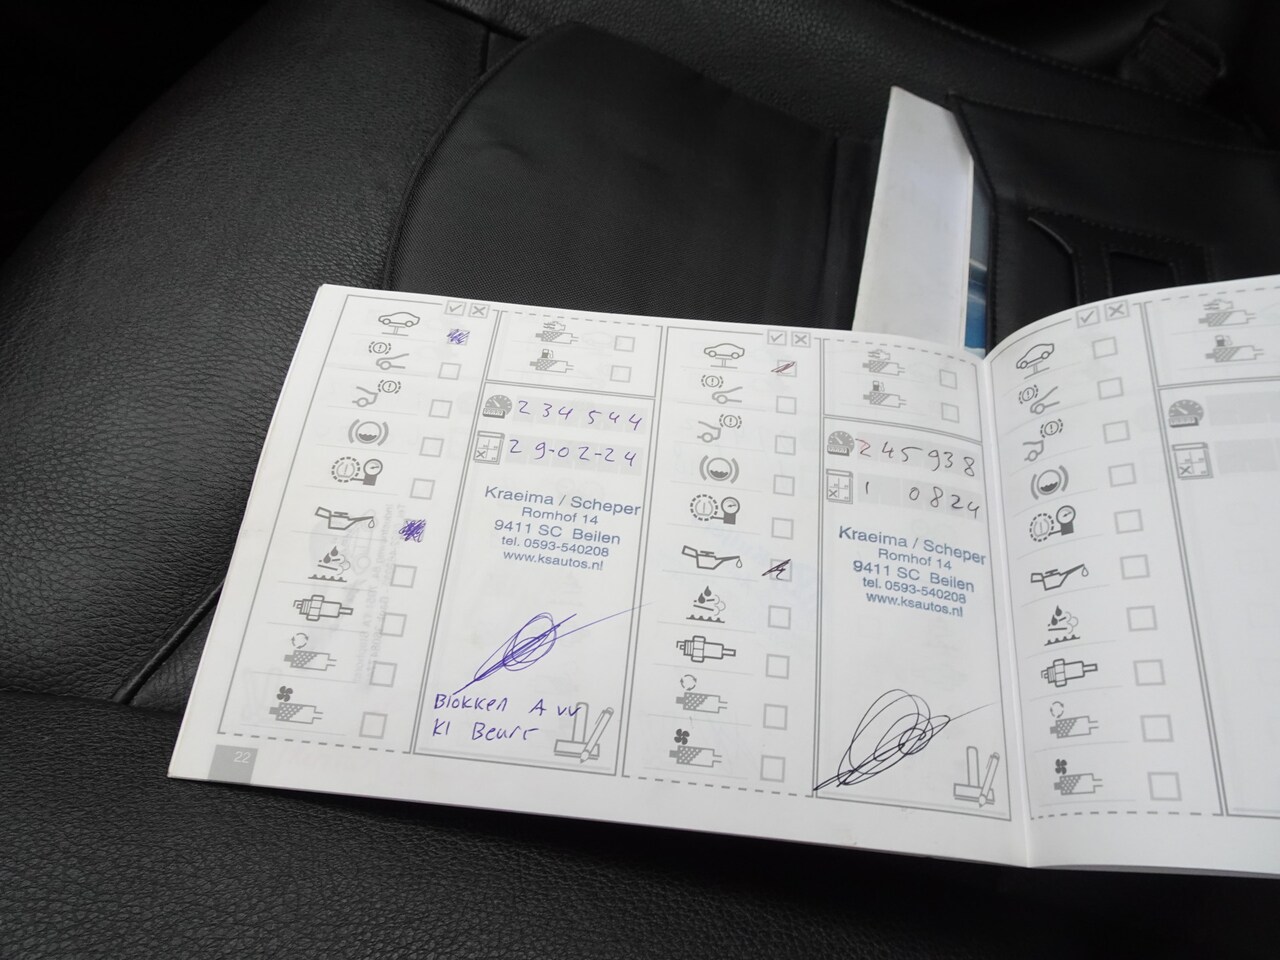 234544
29-02-24
Kraeima / Scheper
Romhof 14
9411 SC Beilen
tel. 0593-540208
www.ksautos.nl
Blokken A vv
Kl Beurt
22
245938
1 0824
Kraeima / Scheper
Romhof 14
9411 SC Beilen
tel. 0593-540208
www.ksautos.nl